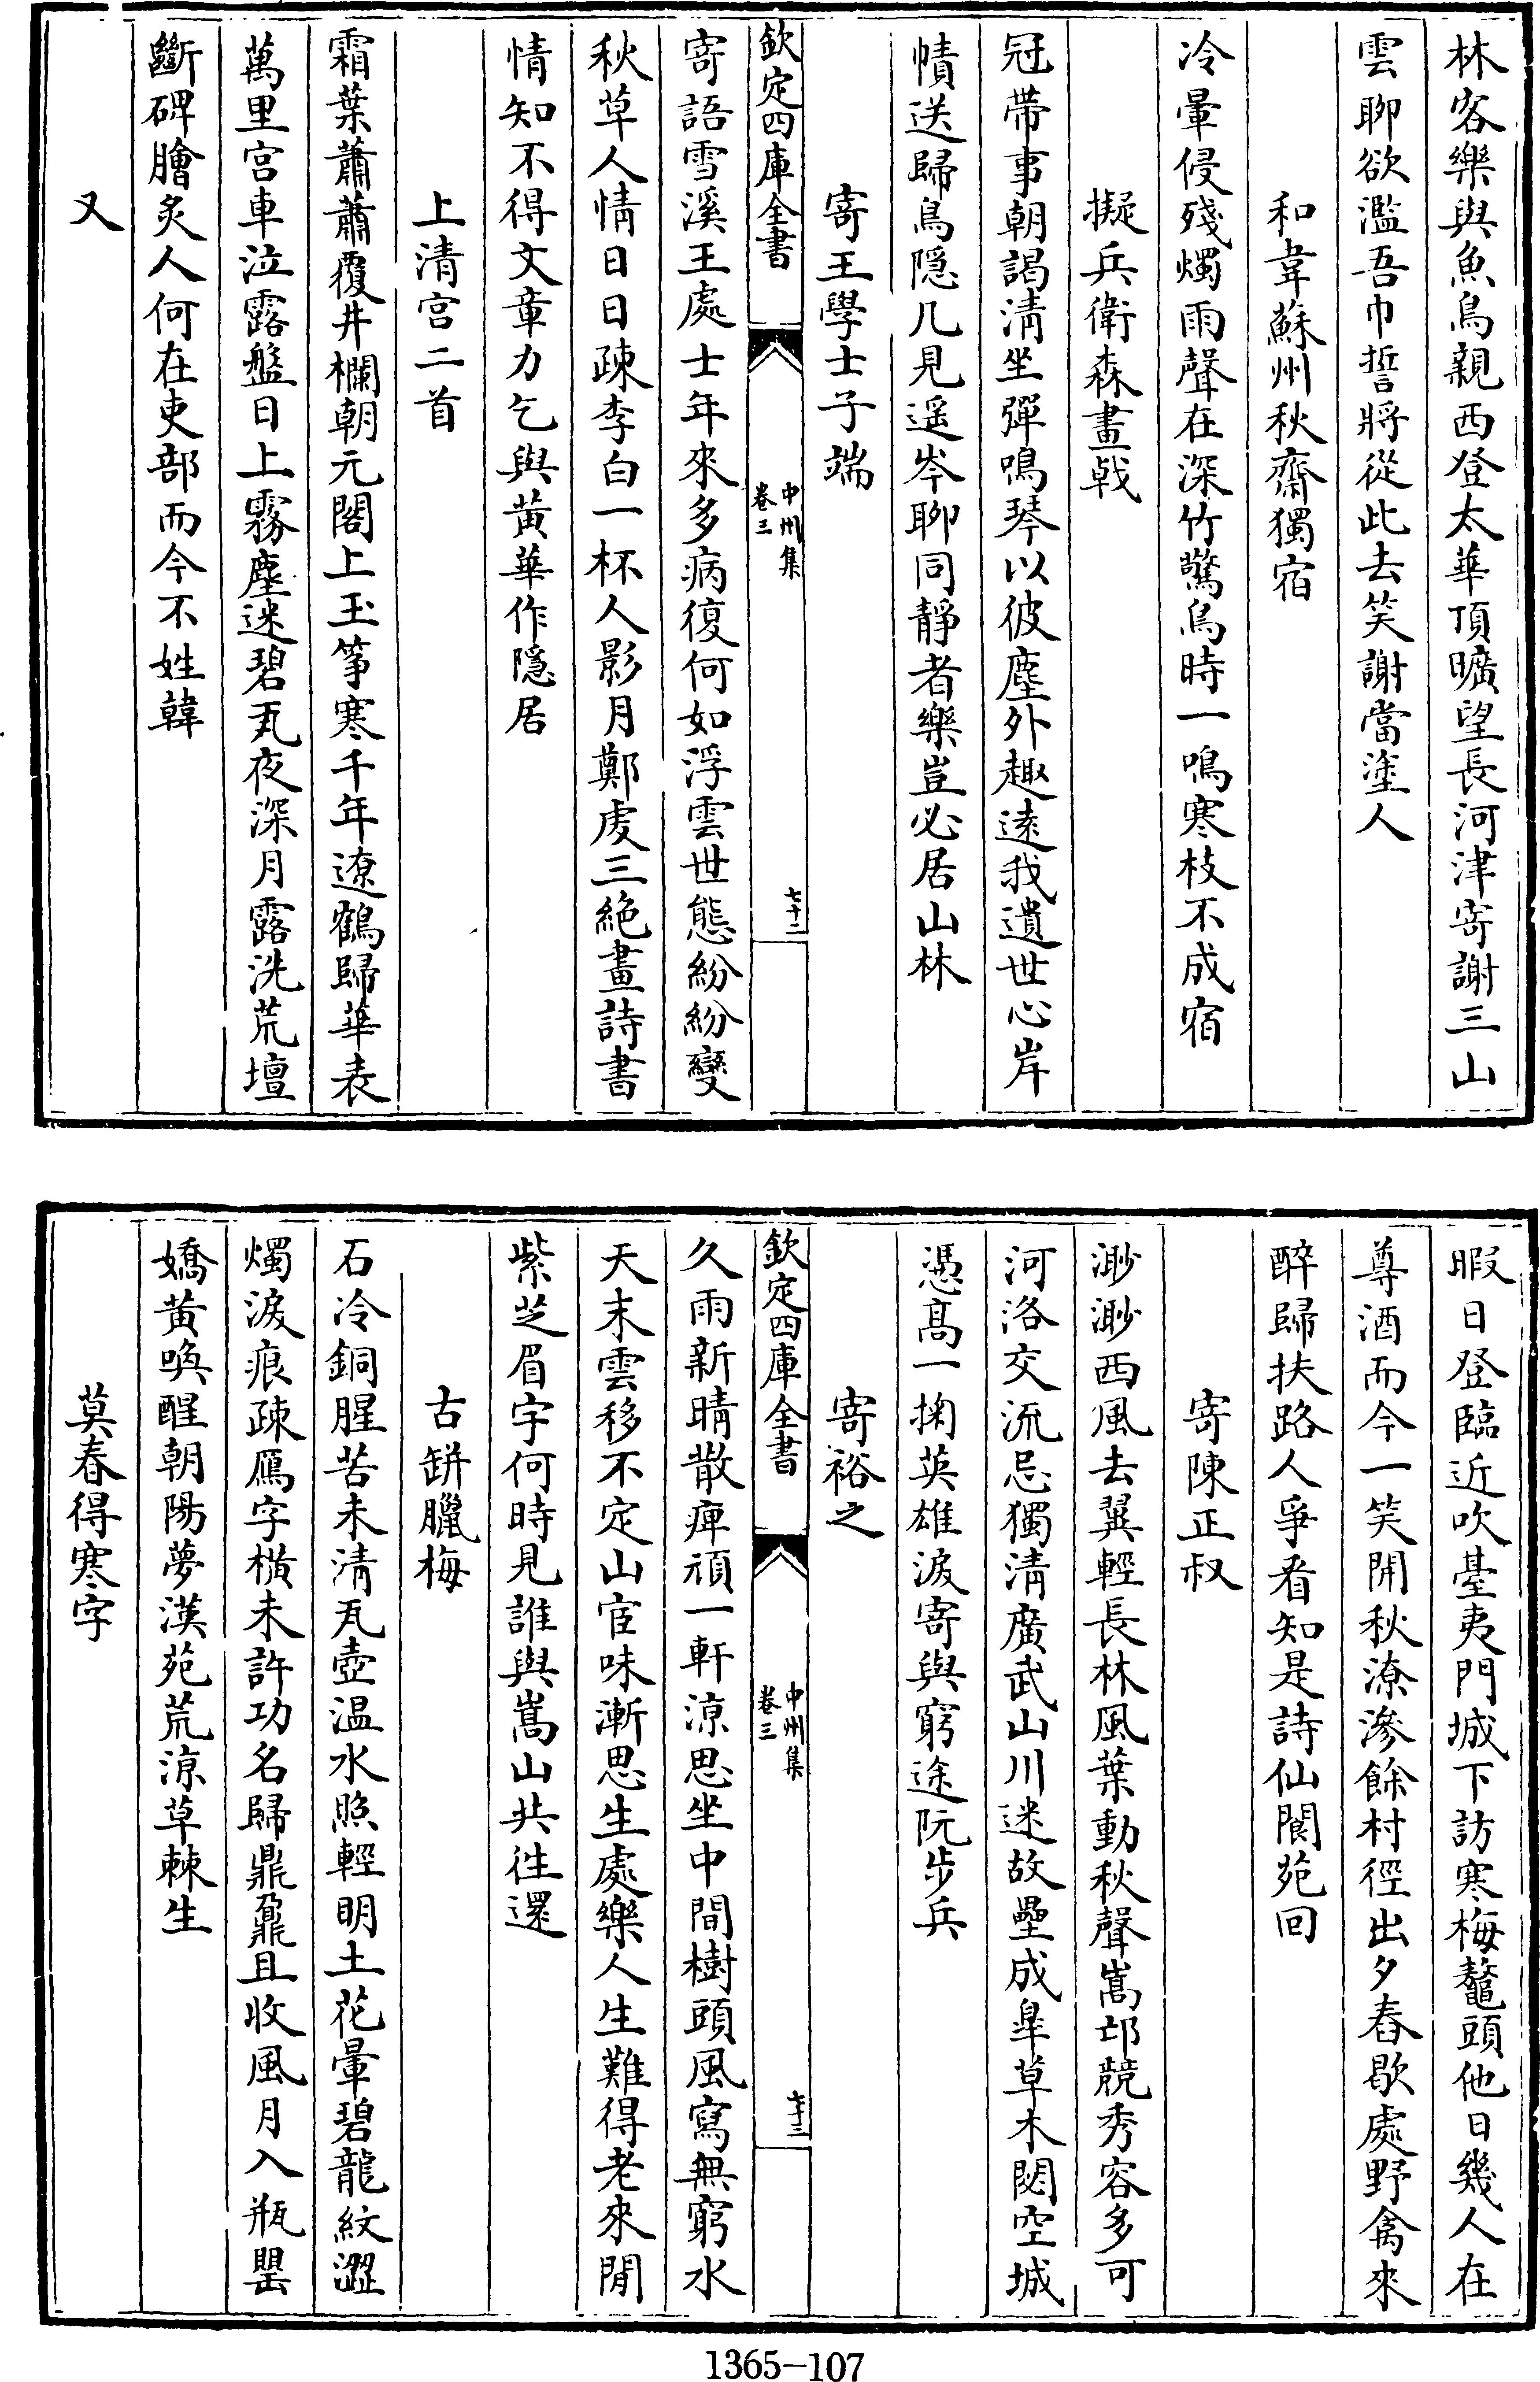 林客樂與魚鳥親西登太華頂曠望長河津寄謝三山
雲聊欲濫吾巾誓將從此去笑謝當塗人
和韋蘇州秋齋獨宿
冷暈侵殘燭雨聲在深竹驚鳥時一鳴寒枝不成宿
擬兵衛森畫戟
冠帶事朝謁清坐彈鳴琴以彼塵外趣逺我遺世心岸
幘送歸鳥隠几見遥岑聊同靜者樂豈必居山林
寄王學士子端
欽定四庫全書
中州集
卷三
七十二
寄語雪溪王處士年來多病復何如浮雲世態紛紛變
秋草人情日日疎李白一杯人影月鄭虔三絶畫詩書
情知不得文章力乞與黄華作隱居
上清宫二首
霜葉蕭蕭覆井欄朝元閣上玉筝寒千年遼鶴歸華表
萬里宫車泣露盤日上霧塵迷碧瓦夜深月露洗荒壇
斷碑膾炙人何在吏部而今不姓韓
又
暇日登臨近吹臺夷門城下訪寒梅鼇頭他日幾人在
尊酒而今一笑開秋潦滲餘村徑出夕舂歇處野禽來
醉歸扶路人爭看知是詩仙閬苑回
寄陳正叔
渺渺西風去翼輕長林風葉動秋聲嵩邙競秀容多可
河洛交流忌獨清廣武山川迷故壘成臯草木閟空城
憑髙一掬英雄淚寄與窮途阮步兵
寄裕之
欽定四庫全書
中州集
卷三
七十三
久雨新晴散痺頑一軒涼思坐中間樹頭風寫無窮水
天末雲移不定山宦味漸思生處樂人生難得老來閒
紫芝眉宇何時見誰與嵩山共徃還
古缾臘梅
石冷銅腥苦未清瓦壺温水照輕明土花暈碧龍紋澀
燭淚痕疎鴈字横未許功名歸鼎鼐且收風月入瓶罌
嬌黄喚醒朝陽夢漢苑荒涼草棘生
莫春得寒字
1365-107